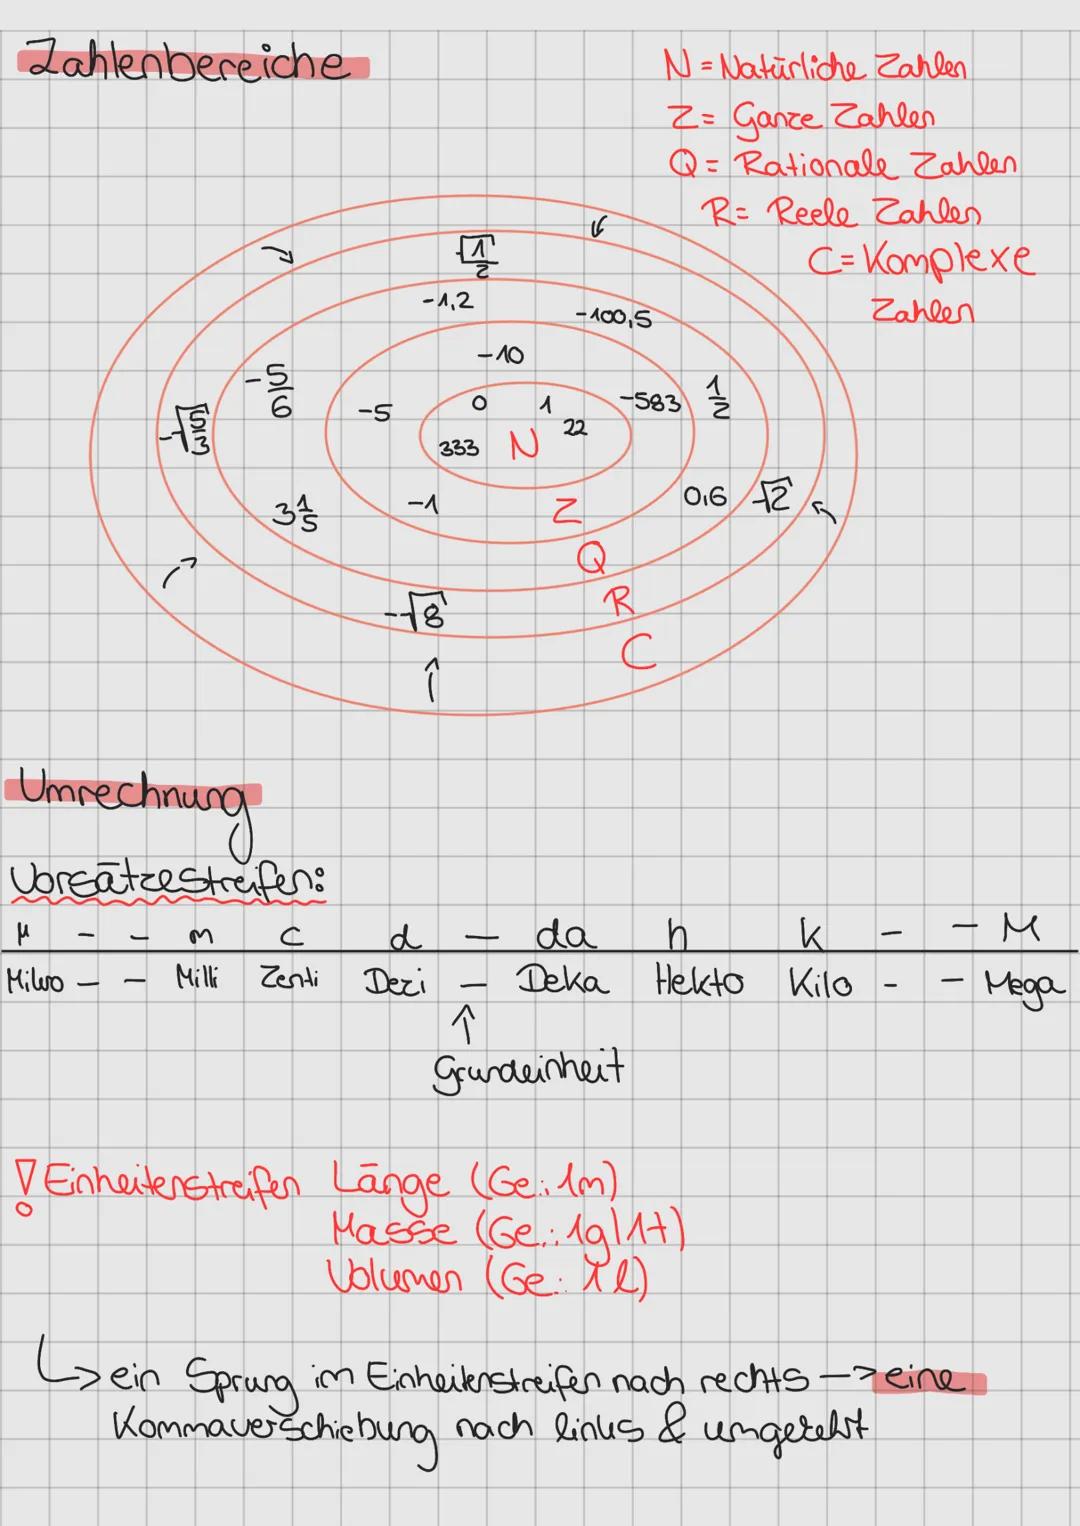 Zahlenbereiche
N = Natürliche Zahlen
Z = Ganze Zahlen
Q = Rationale Zahlen
R = Reele Zahlen
C = Komplexe
Zahlen
√1/2
-1,2
-100,5
-10
-5/6
-5
0
1
-583
1/2
-√5/3
333
N
22
3 1/5
-1
Z
0,6
√2
Q
-√8
R
C
Umrechnung
Vorsätzestreifen:
µ - - m c d - da h k - - M
Mikro - - Milli Zenti Dezi - Deka Hekto Kilo - - Mega
↑
Grundeinheit
! Einheitenstreifen Länge (Ge.: 1m)
Masse (Ge.: 1g/1t)
Volumen (Ge.: 1l)
↳ ein Sprung im Einheitenstreifen nach rechts → eine
Kommaverschiebung nach links & umgekehrt